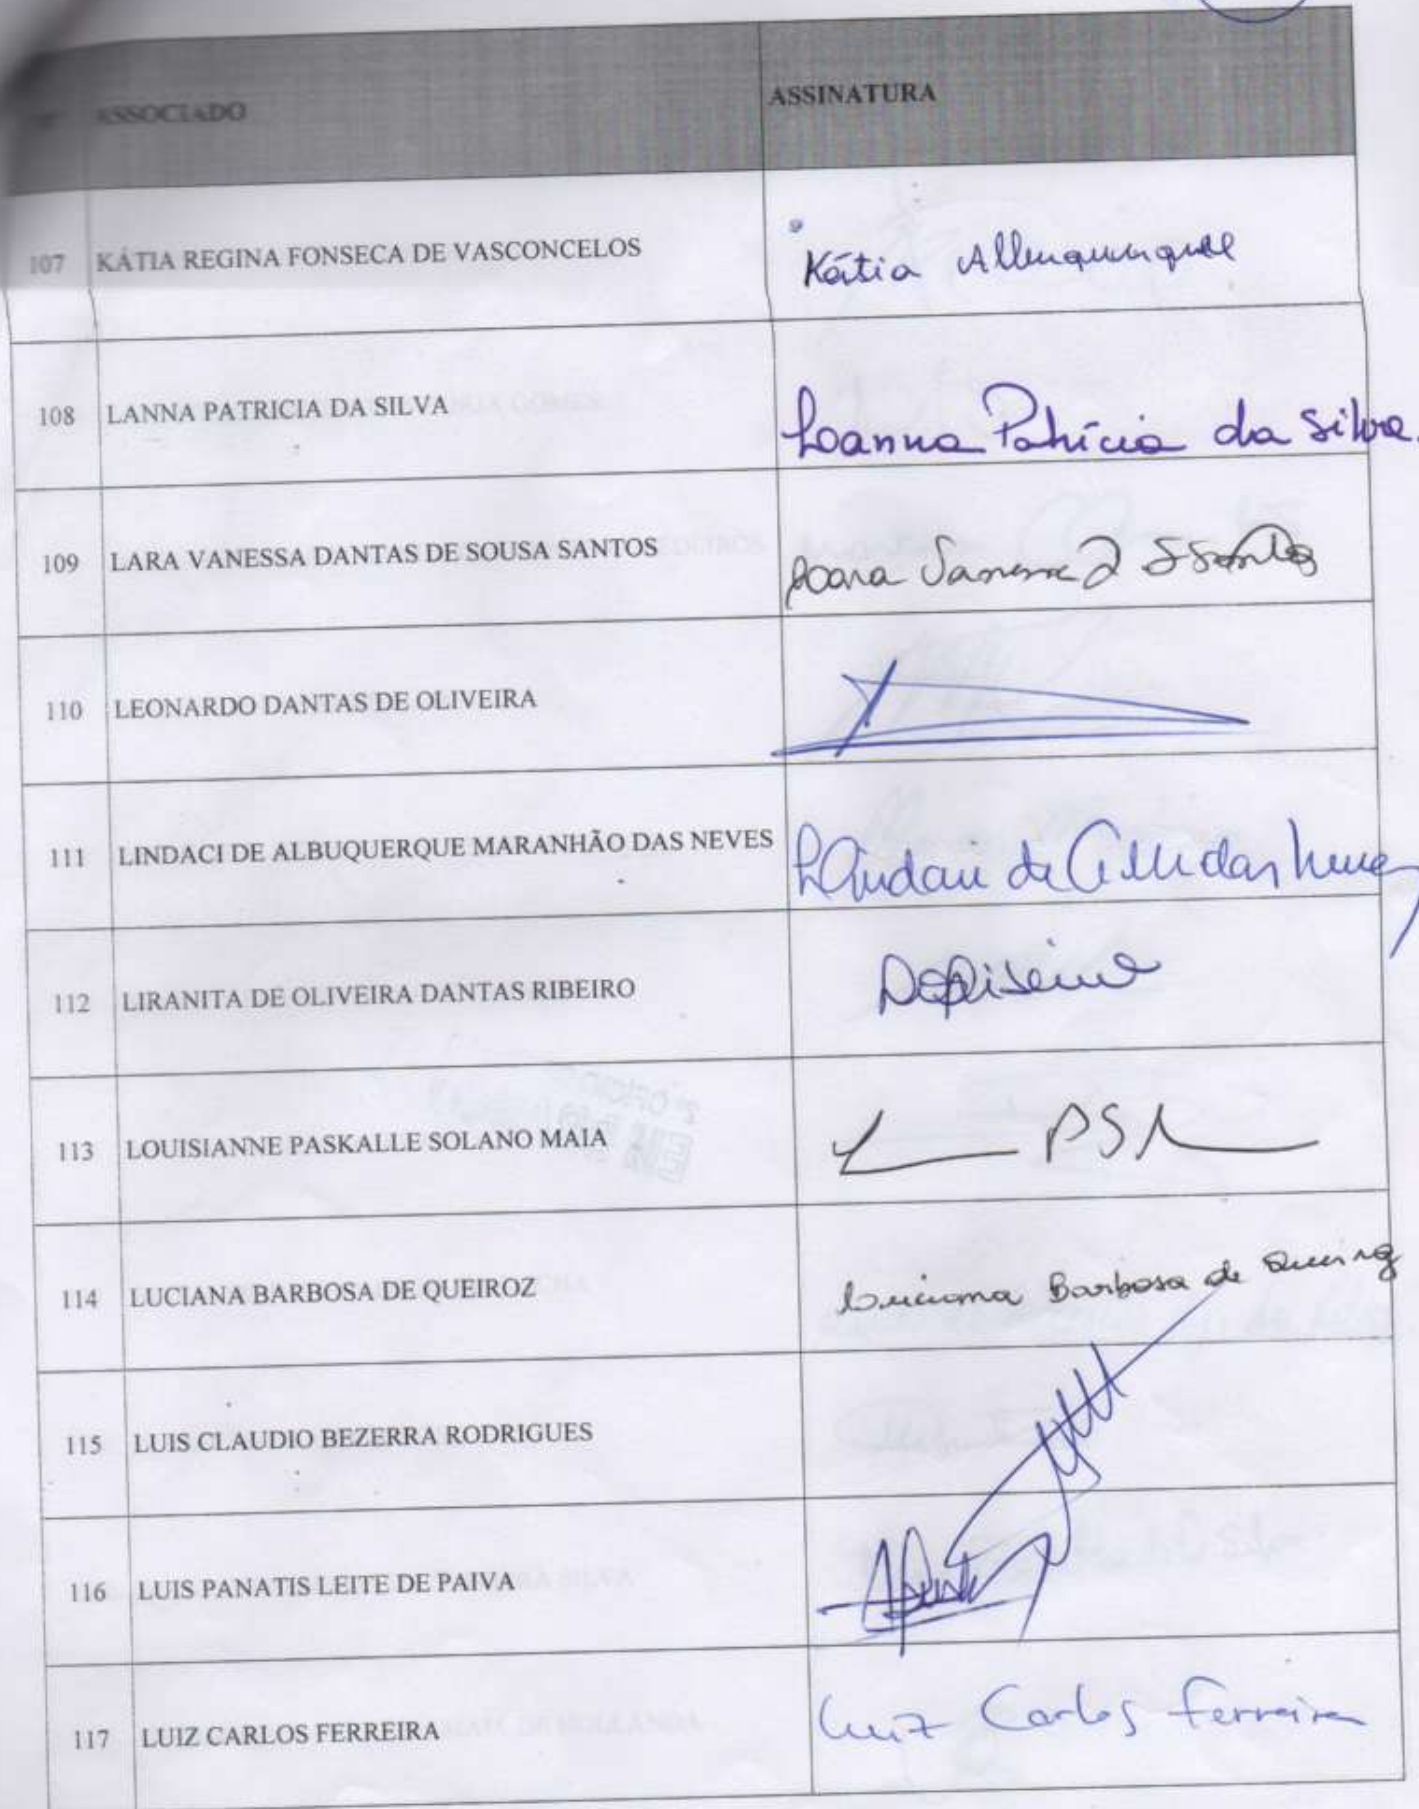 ASSOCIADO ASSINATURA
107 KÁTIA REGINA FONSECA DE VASCONCELOS Kátia Albuquerque
108 LANNA PATRICIA DA SILVA Lanna Patrícia da Silva.
109 LARA VANESSA DANTAS DE SOUSA SANTOS Lara Vanessa D S Santos
110 LEONARDO DANTAS DE OLIVEIRA
111 LINDACI DE ALBUQUERQUE MARANHÃO DAS NEVES Lindaci de das Neves
112 LIRANITA DE OLIVEIRA DANTAS RIBEIRO
113 LOUISIANNE PASKALLE SOLANO MAIA
114 LUCIANA BARBOSA DE QUEIROZ Luciana Barbosa de Queiroz
115 LUIS CLAUDIO BEZERRA RODRIGUES
116 LUIS PANATIS LEITE DE PAIVA
117 LUIZ CARLOS FERREIRA Luiz Carlos Ferreira